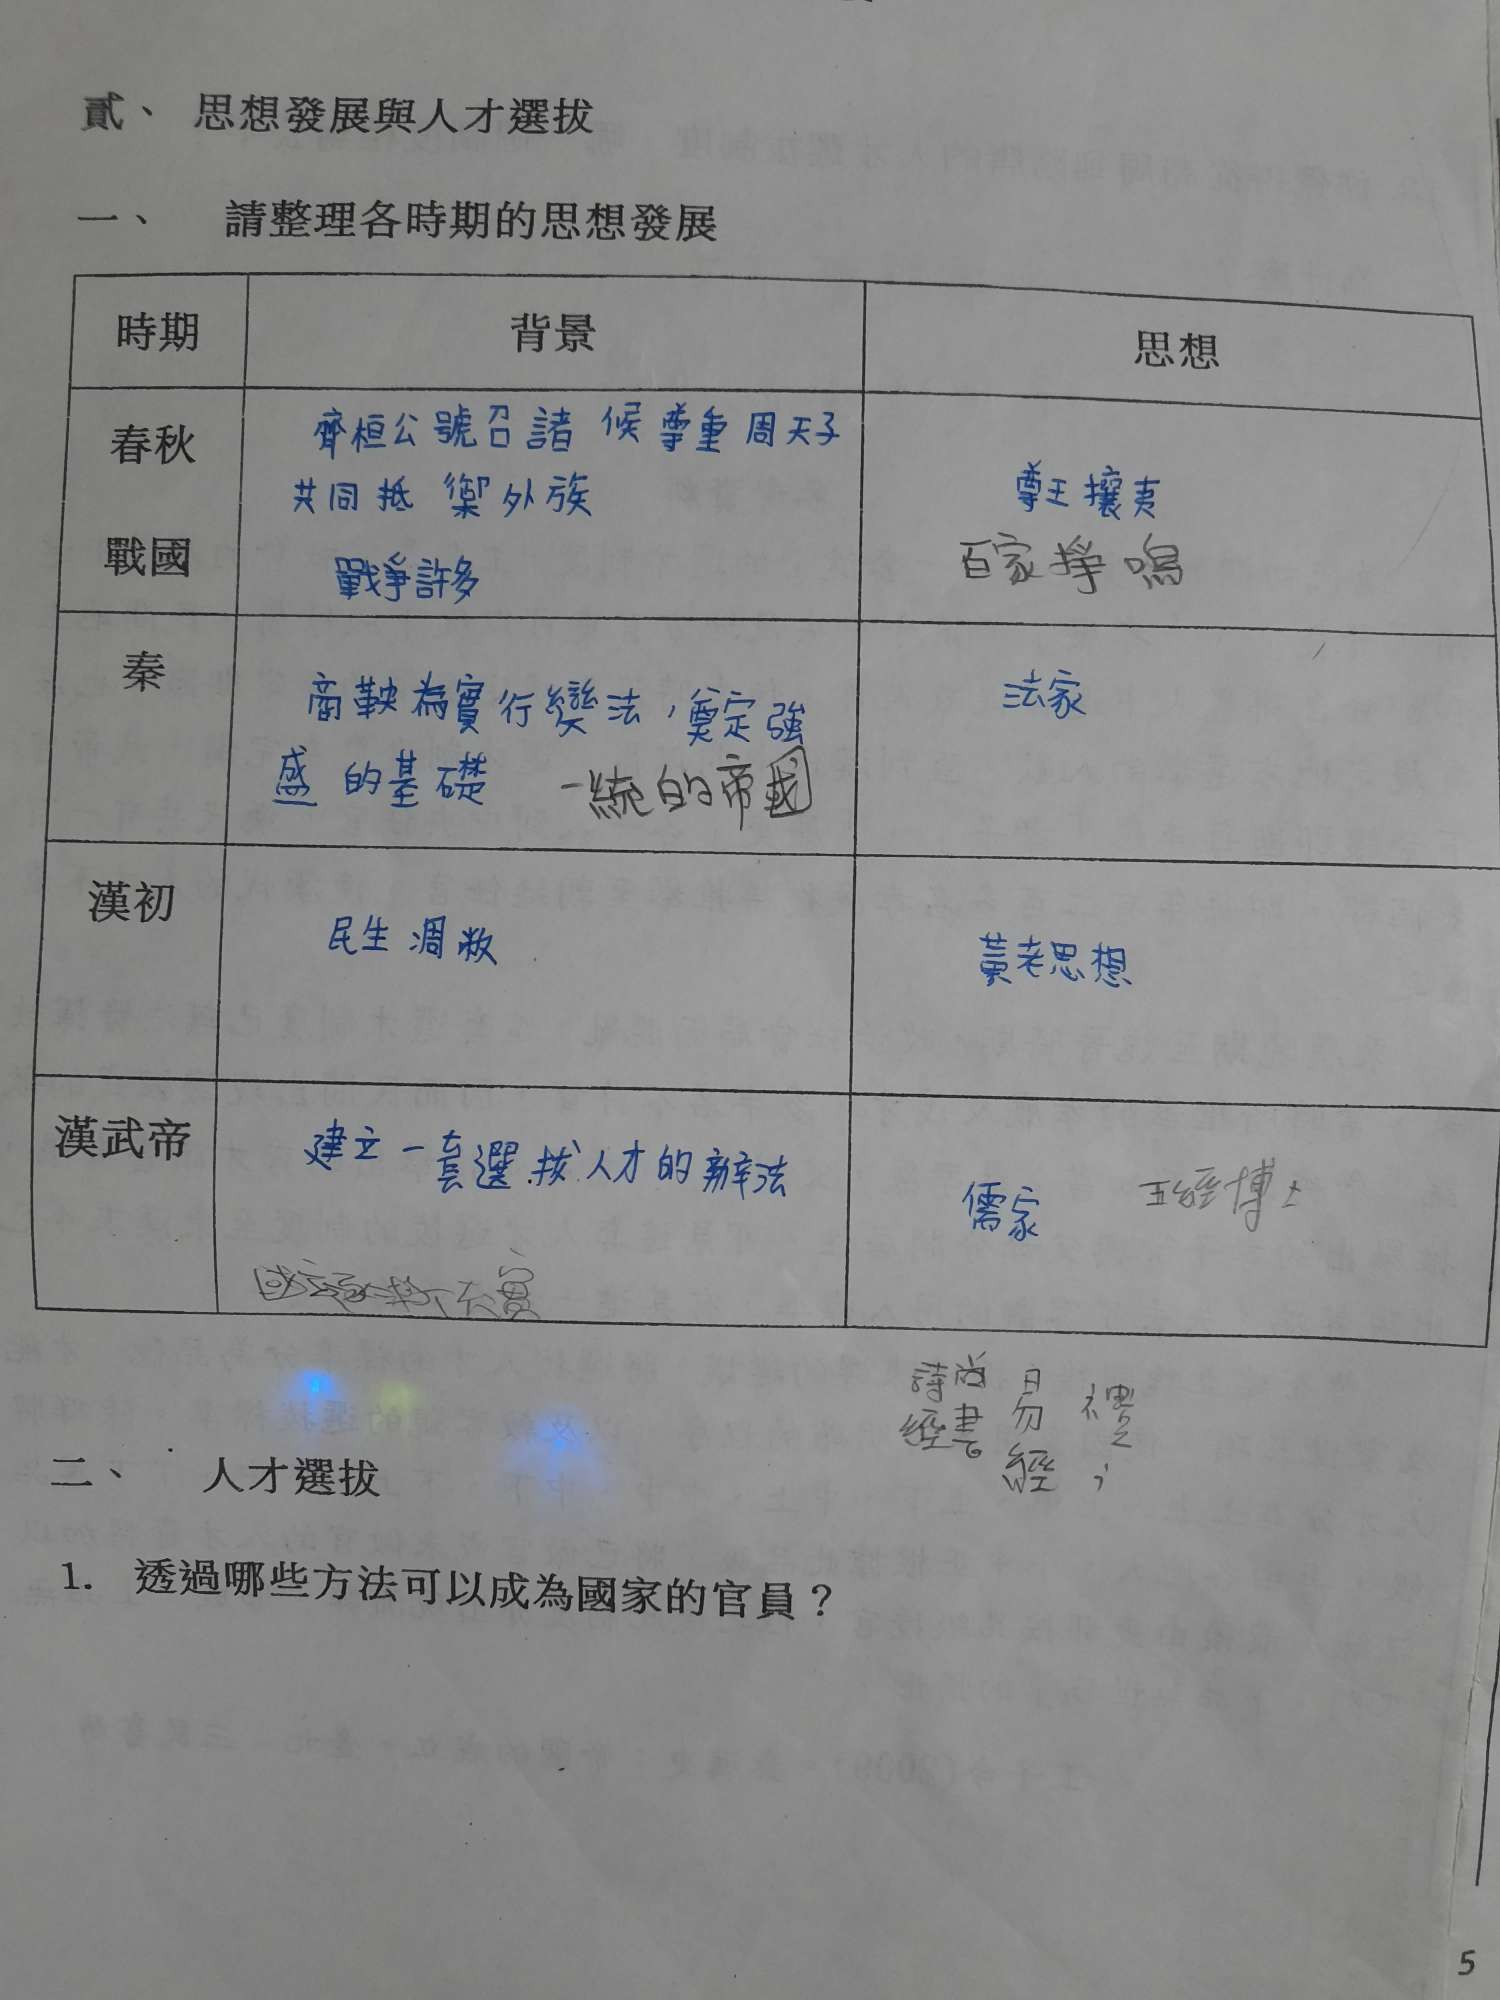 貳、 思想發展與人才選拔
一、 請整理各時期的思想發展
時期 背景 思想
春秋
戰國
齊桓公號召諸候尊重周天子
共同抵禦外族
戰爭許多
尊王攘夷
百家掙鳴
秦
商鞅為實行變法，奠定強
盛的基礎 一統的帝國
法家
漢初
民生凋敝
黃老思想
漢武帝
建立一套選拔人才的辦法
儒家 五經博士
詩經 尚書 易經 禮
二、 人才選拔
1. 透過哪些方法可以成為國家的官員？
5